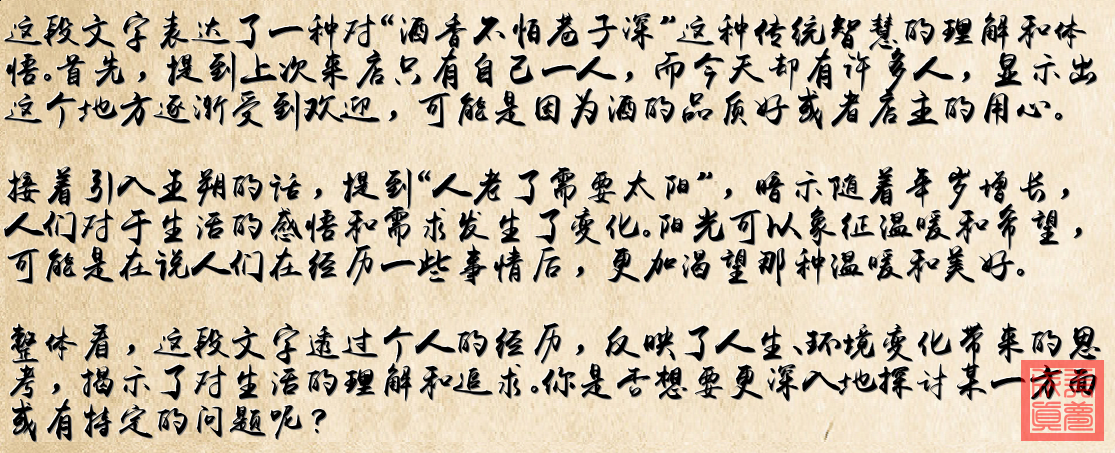 这段文字表达了一种对“酒香不怕巷子深”这种传统智慧的理解和体
悟。首先，提到上次来店只有自己一人，而今天却有许多人，显示出
这个地方逐渐受到欢迎，可能是因为酒的品质好或者店主的用心。
接着引入王朔的话，提到“人老了需要太阳”，暗示随着年岁增长，
人们对于生活的感悟和需求发生了变化。阳光可以象征温暖和希望，
可能是在说人们在经历一些事情后，更加渴望那种温暖和美好。
整体看，这段文字透过个人的经历，反映了人生、环境变化带来的思
考，揭示了对生活的理解和追求。你是否想要更深入地探讨某一方面
或有特定的问题呢？